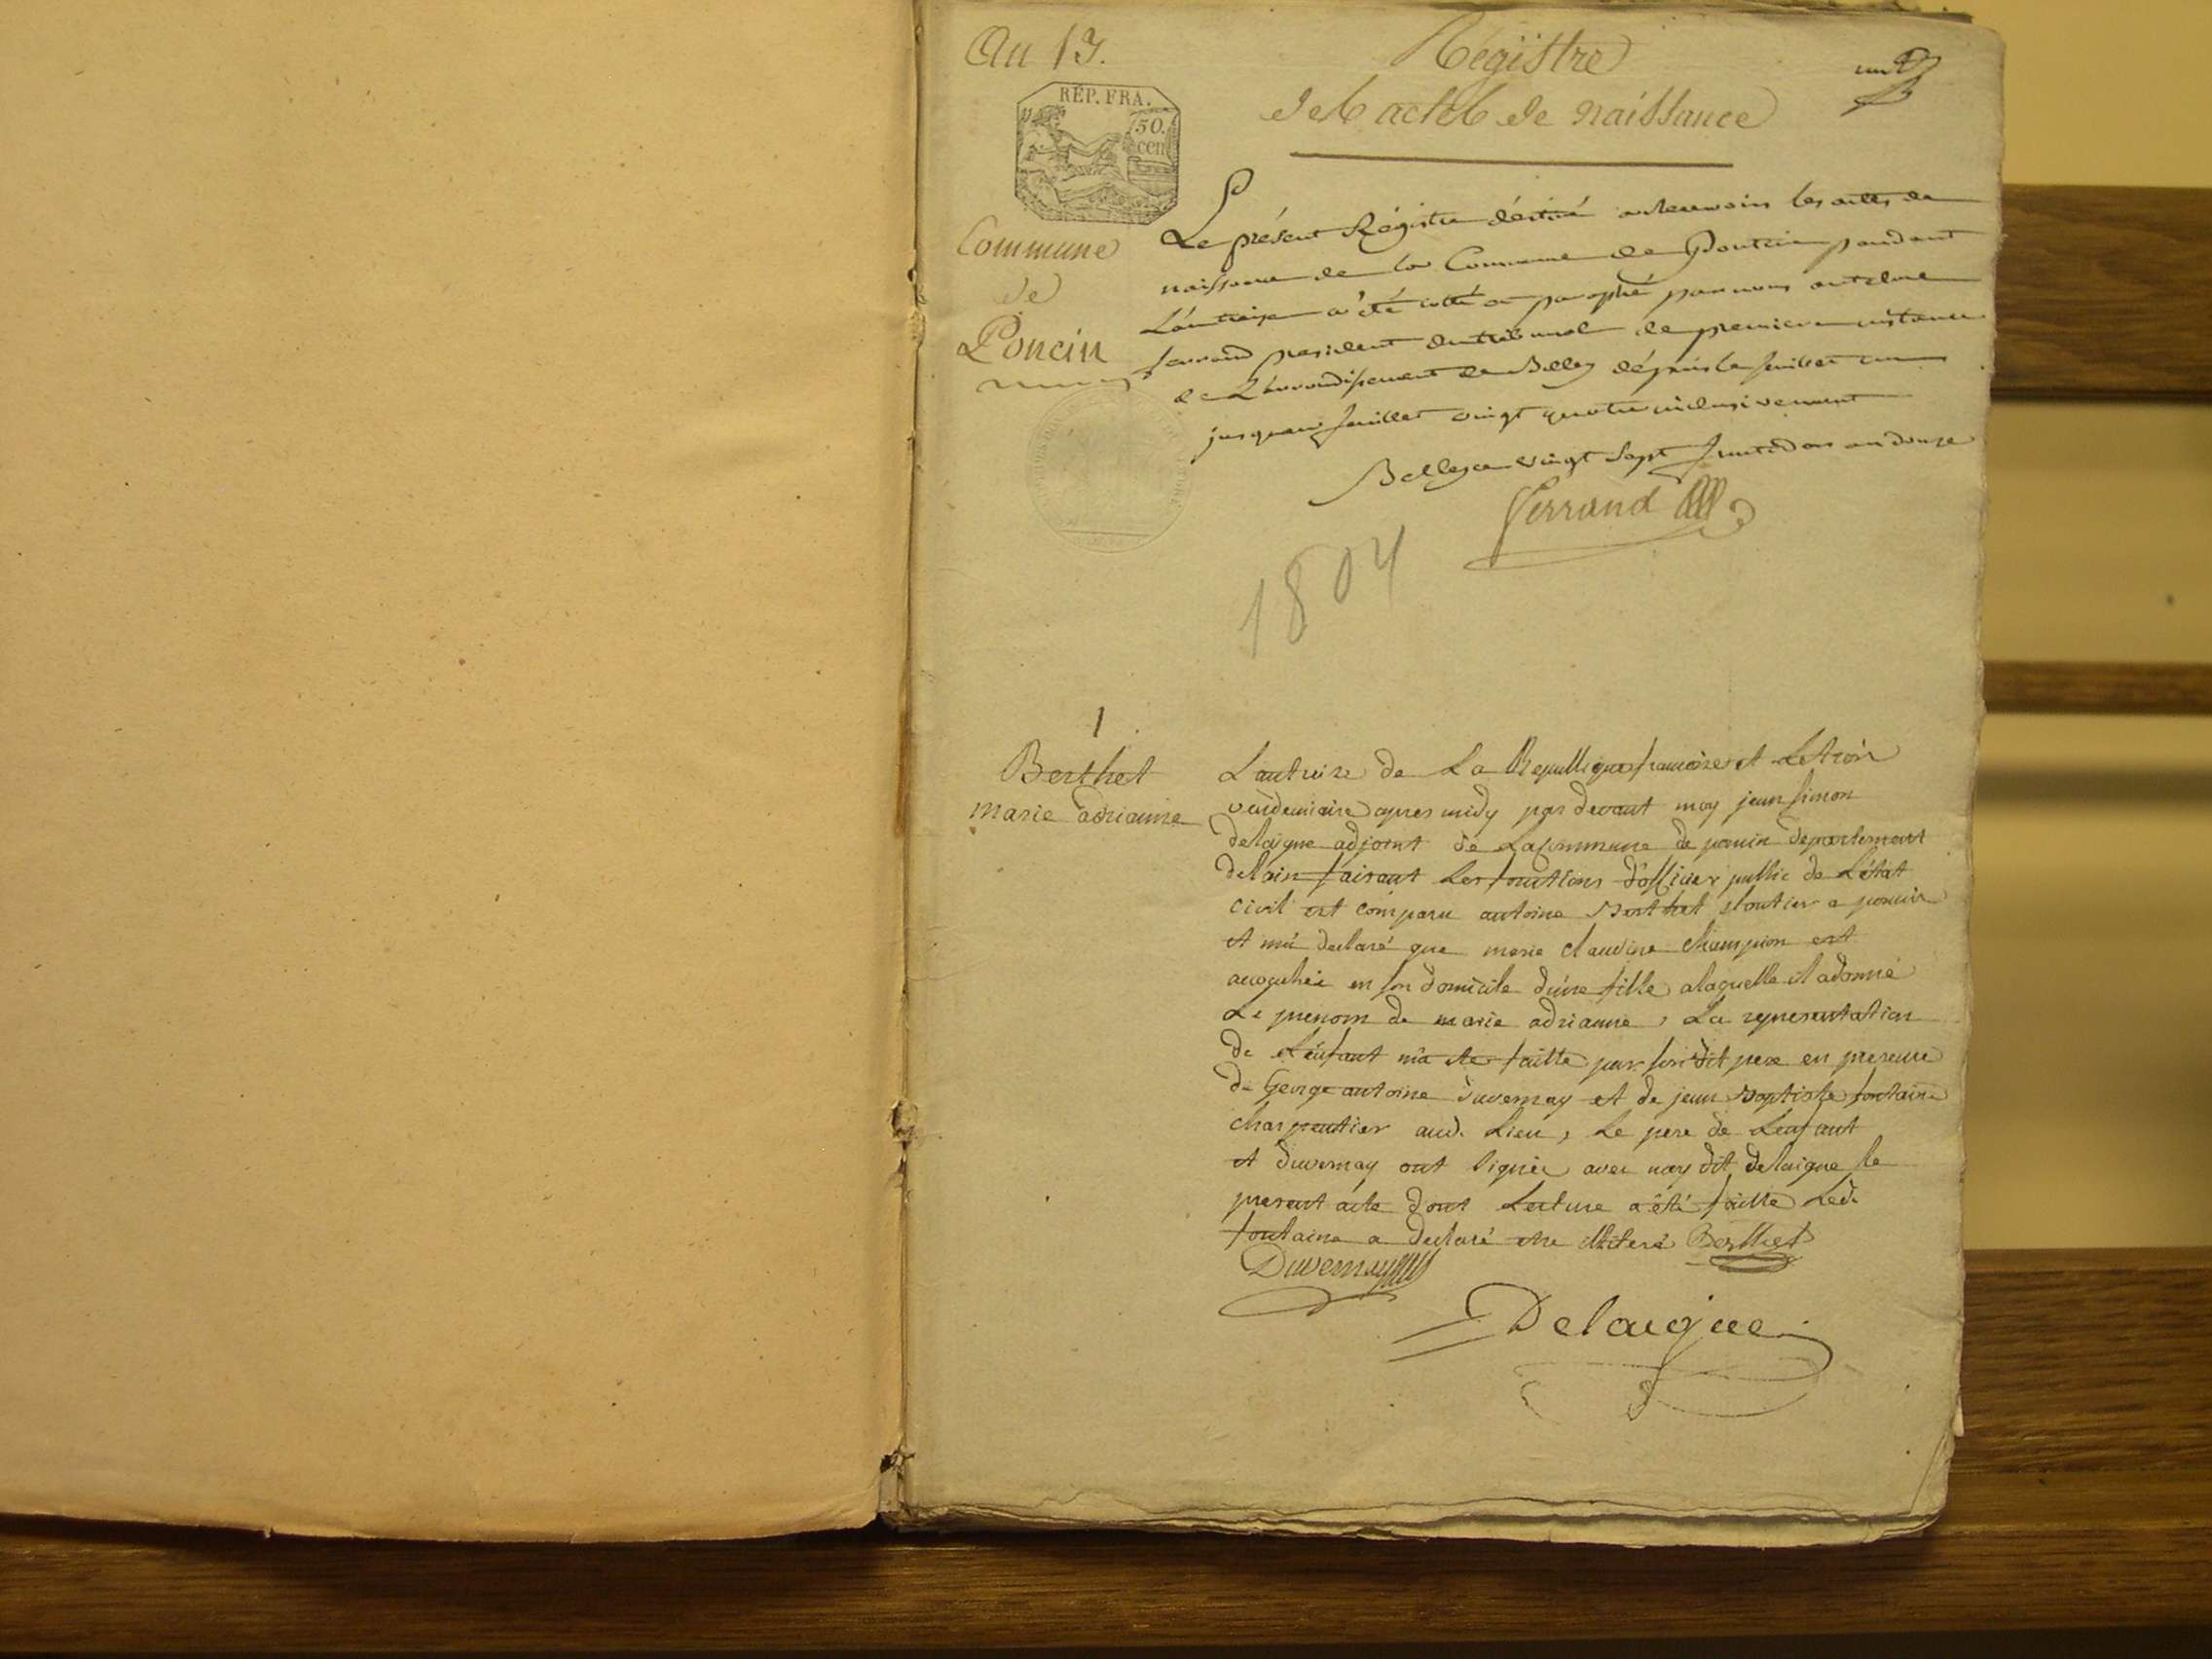 An 13.
Régistre
un
des actes de naissance
RÉP. FRA.
50.
cen
Commune
de
Poncin
Le présent Régistre déstiné a recevoir les actes de
naissance de la Commune de Pontcin pendant
L'an treize a été cotté et paraphé par nous antelme
ferrand president du tribunal de premiere instance
de L'arrondissement de Belley dépuis le feuillet un
jusqu'au feuillet vingt quatre inclusivement
Belley ce vingt sept fructidor an douze
Ferrand
1804
1
Berthet
marie adrianne
L'an treize de La Republique francoise et Le trois
vendemiaire apres midy par devant moy jean simon
delaigne adjoint de La commune de poncin departement
de l'ain faisant Les fonctions d'officier public de L'état
civil est comparu antoine Berthet a poncin
et m'a declaré que marie claudine champion est
accouchée en son domicile d'une fille a laquelle il a donné
Le prenom de marie adrianne, La representation
de L'enfant m'a ete faitte par son dit pere en presence
de George antoine duvernay et de jean Baptiste fontaine
charpentier aud. Lieu, Le pere de L'enfant
et duvernay ont signés avec moy dit delaigne le
present acte dont Lecture a été faitte Led.
fontaine a declaré etre illiteré Berthet
Duvernay
Delaigue